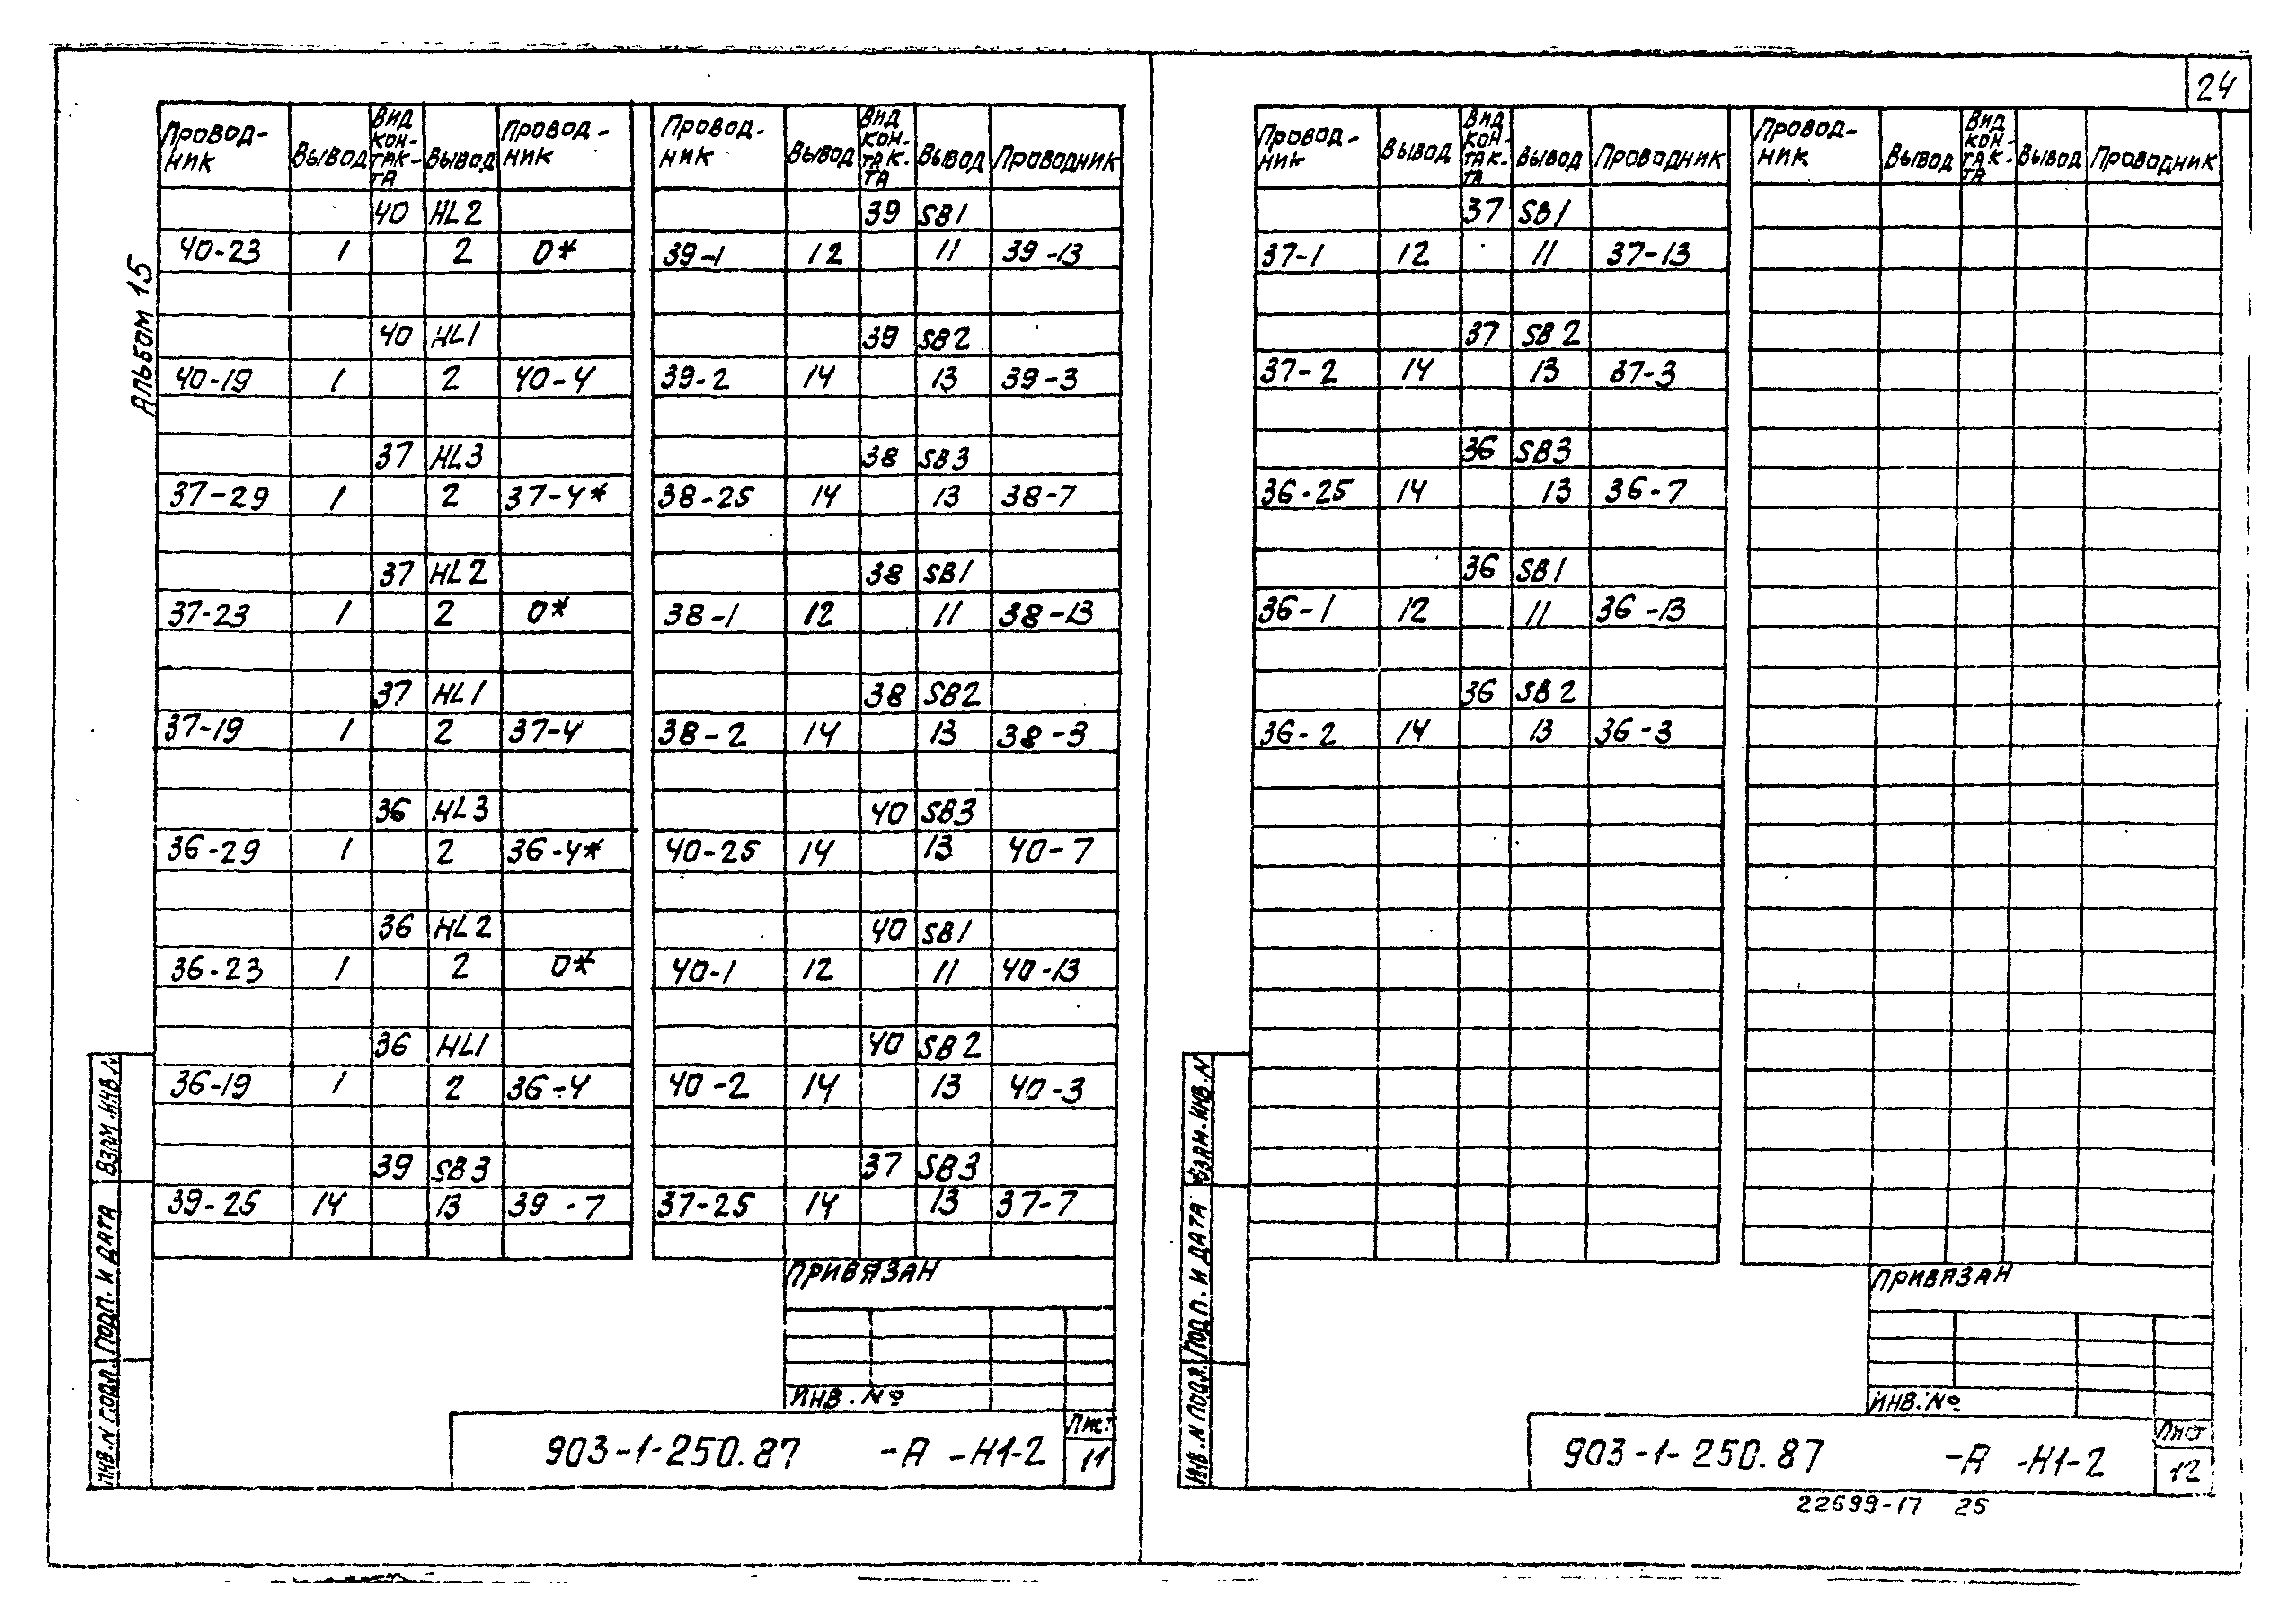 24
Альбом 15
Провод-ник Вывод Вид кон-так-та Вывод Провод-ник
40 HL2
40-23 1 2 0*
40 HL1
40-19 1 2 40-4
37 HL3
37-29 1 2 37-4*
37 HL2
37-23 1 2 0*
37 HL1
37-19 1 2 37-4
36 HL3
36-29 1 2 36-4*
36 HL2
36-23 1 2 0*
36 HL1
36-19 1 2 36-4
39 SB3
39-25 14 13 39-7
Провод-ник Вывод Вид кон-так-та Вывод Проводник
39 SB1
39-1 12 11 39-13
39 SB2
39-2 14 13 39-3
38 SB3
38-25 14 13 38-7
38 SB1
38-1 12 11 38-13
38 SB2
38-2 14 13 38-3
40 SB3
40-25 14 13 40-7
40 SB1
40-1 12 11 40-13
40 SB2
40-2 14 13 40-3
37 SB3
37-25 14 13 37-7
Привязан
Инв. №
903-1-250.87 -А -Н1-2
Лист
11
Инв. N подл. Подп. и дата Взам. инв. N
Провод-ник Вывод Вид кон-так-та Вывод Проводник
37 SB1
37-1 12 11 37-13
37 SB2
37-2 14 13 37-3
36 SB3
36-25 14 13 36-7
36 SB1
36-1 12 11 36-13
36 SB2
36-2 14 13 36-3
Провод-ник Вывод Вид кон-так-та Вывод Проводник
Привязан
Инв. №
903-1-250.87 -А -Н1-2
Лист
12
Инв. N подл. Подп. и дата Взам. инв. N
22699-17 25